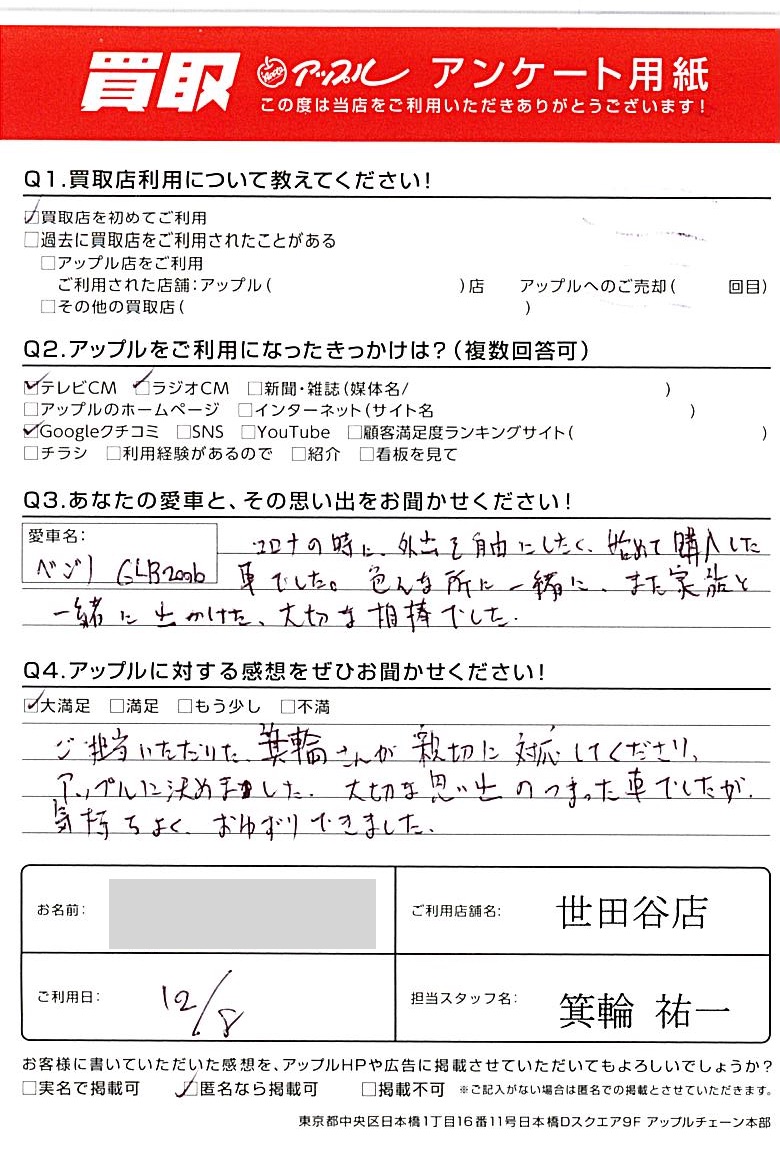 買取 アップル アンケート用紙
この度は当店をご利用いただきありがとうございます!
Q1.買取店利用について教えてください!
☑買取店を初めてご利用
□過去に買取店をご利用されたことがある
□アップル店をご利用
ご利用された店舗:アップル( )店 アップルへのご売却( 回目)
□その他の買取店( )
Q2.アップルをご利用になったきっかけは?(複数回答可)
☑テレビCM ☑ラジオCM □新聞・雑誌(媒体名/ )
□アップルのホームページ □インターネット(サイト名 )
☑Googleクチコミ □SNS □YouTube □顧客満足度ランキングサイト( )
□チラシ □利用経験があるので □紹介 □看板を見て
Q3.あなたの愛車と、その思い出をお聞かせください!
愛車名:
ベンツ GLB200b
コロナの時に、外出を自由にしたく、始めて購入した
車でした。色んな所に一緒に、また家族と
一緒に出かけた、大切な相棒でした.
Q4.アップルに対する感想をぜひお聞かせください!
☑大満足 □満足 □もう少し □不満
ご担当いただいた、箕輪さんが親切に対応してくださり、
アップルに決めました. 大切な思い出のつまった車でしたが、
気持ちよく、おゆずりできました.
お名前:
ご利用店舗名: 世田谷店
ご利用日: 12/8
担当スタッフ名: 箕輪 祐一
お客様に書いていただいた感想を、アップルHPや広告に掲載させていただいてもよろしいでしょうか?
□実名で掲載可 ☑匿名なら掲載可 □掲載不可 ※ご記入がない場合は匿名での掲載とさせていただきます。
東京都中央区日本橋1丁目16番11号日本橋Dスクエア9F アップルチェーン本部